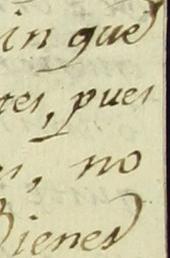 in que
tes, pues
s, no
Bienes